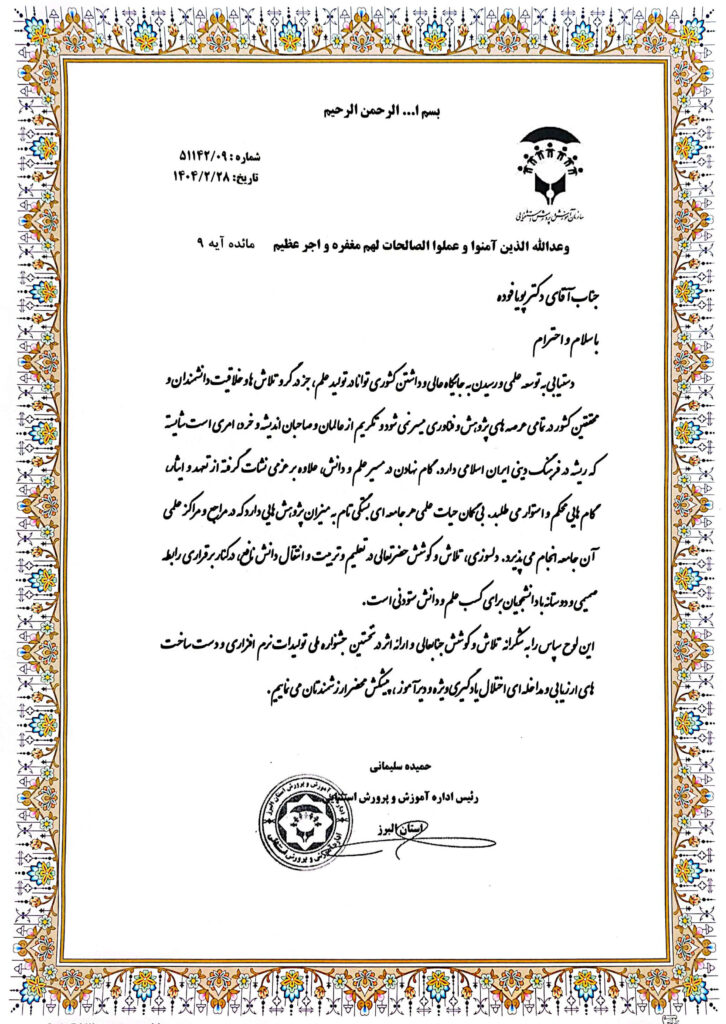 بسم ا... الرحمن الرحیم
شماره : ۵۱۱۴۲/۰۹
تاریخ: ۱۴۰۴/۲/۲۸
سازمان آموزش و پرورش استثنایی
وعدالله الذین آمنوا و عملوا الصالحات لهم مغفره و اجر عظیم مائده آیه ۹
جناب آقای دکتر پویا فوده
با سلام و احترام
دستیابی به توسعه علمی و رسیدن به جایگاه عالی و داشتن کشوری توانا در تولید علم، جز در گرو تلاش ها و خلاقیت دانشمندان و
محققین کشور در تمامی عرصه های پژوهش و فناوری میسر نمی شود و تکریم از عالمان و صاحبان اندیشه و خرد، امری است شایسته
که ریشه در فرهنگ دینی ایران اسلامی دارد. گام نهادن در مسیر علم و دانش، علاوه بر عزمی نشات گرفته از تعهد و ایثار،
گام هایی محکم و استوار می طلبد. بی گمان حیات علمی هر جامعه ای بستگی تام به میزان پژوهش هایی دارد که در مراجع و مراکز علمی
آن جامعه انجام می پذیرد. دلسوزی، تلاش و کوشش حضرتعالی در تعلیم و تربیت و انتقال دانش نافع، در کنار برقراری رابطه
صمیمی و دوستانه با دانشجویان برای کسب علم و دانش ستودنی است.
این لوح سپاس را به شکرانه تلاش و کوشش جنابعالی و ارائه اثر در نخستین جشنواره ملی تولیدات نرم افزاری و دست ساخت
های ارزیابی و مداخله ای اختلال یادگیری ویژه و دیرآموز، پیشکش محضر ارزشمندتان می نماییم.
حمیده سلیمانی
رئیس اداره آموزش و پرورش استثنایی
استان البرز
اداره آموزش و پرورش استان البرز
اداره آموزش و پرورش استثنائی